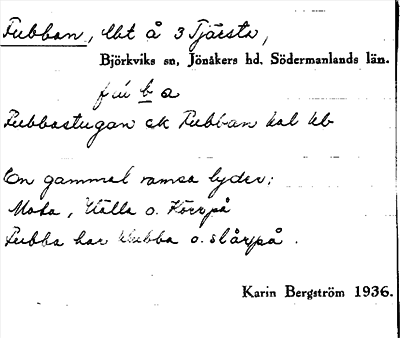 Fubban, lht å 3 Tjärsta,
Björkviks sn, Jönåkers hd, Södermanlands län.
fu b a
Fubbastugan ek Fubban kal lib
En gammal ramsa lyder:
Mosa, Hälla o. Körpå
Fubba har klubba o. slårpå.
Karin Bergström 1936.